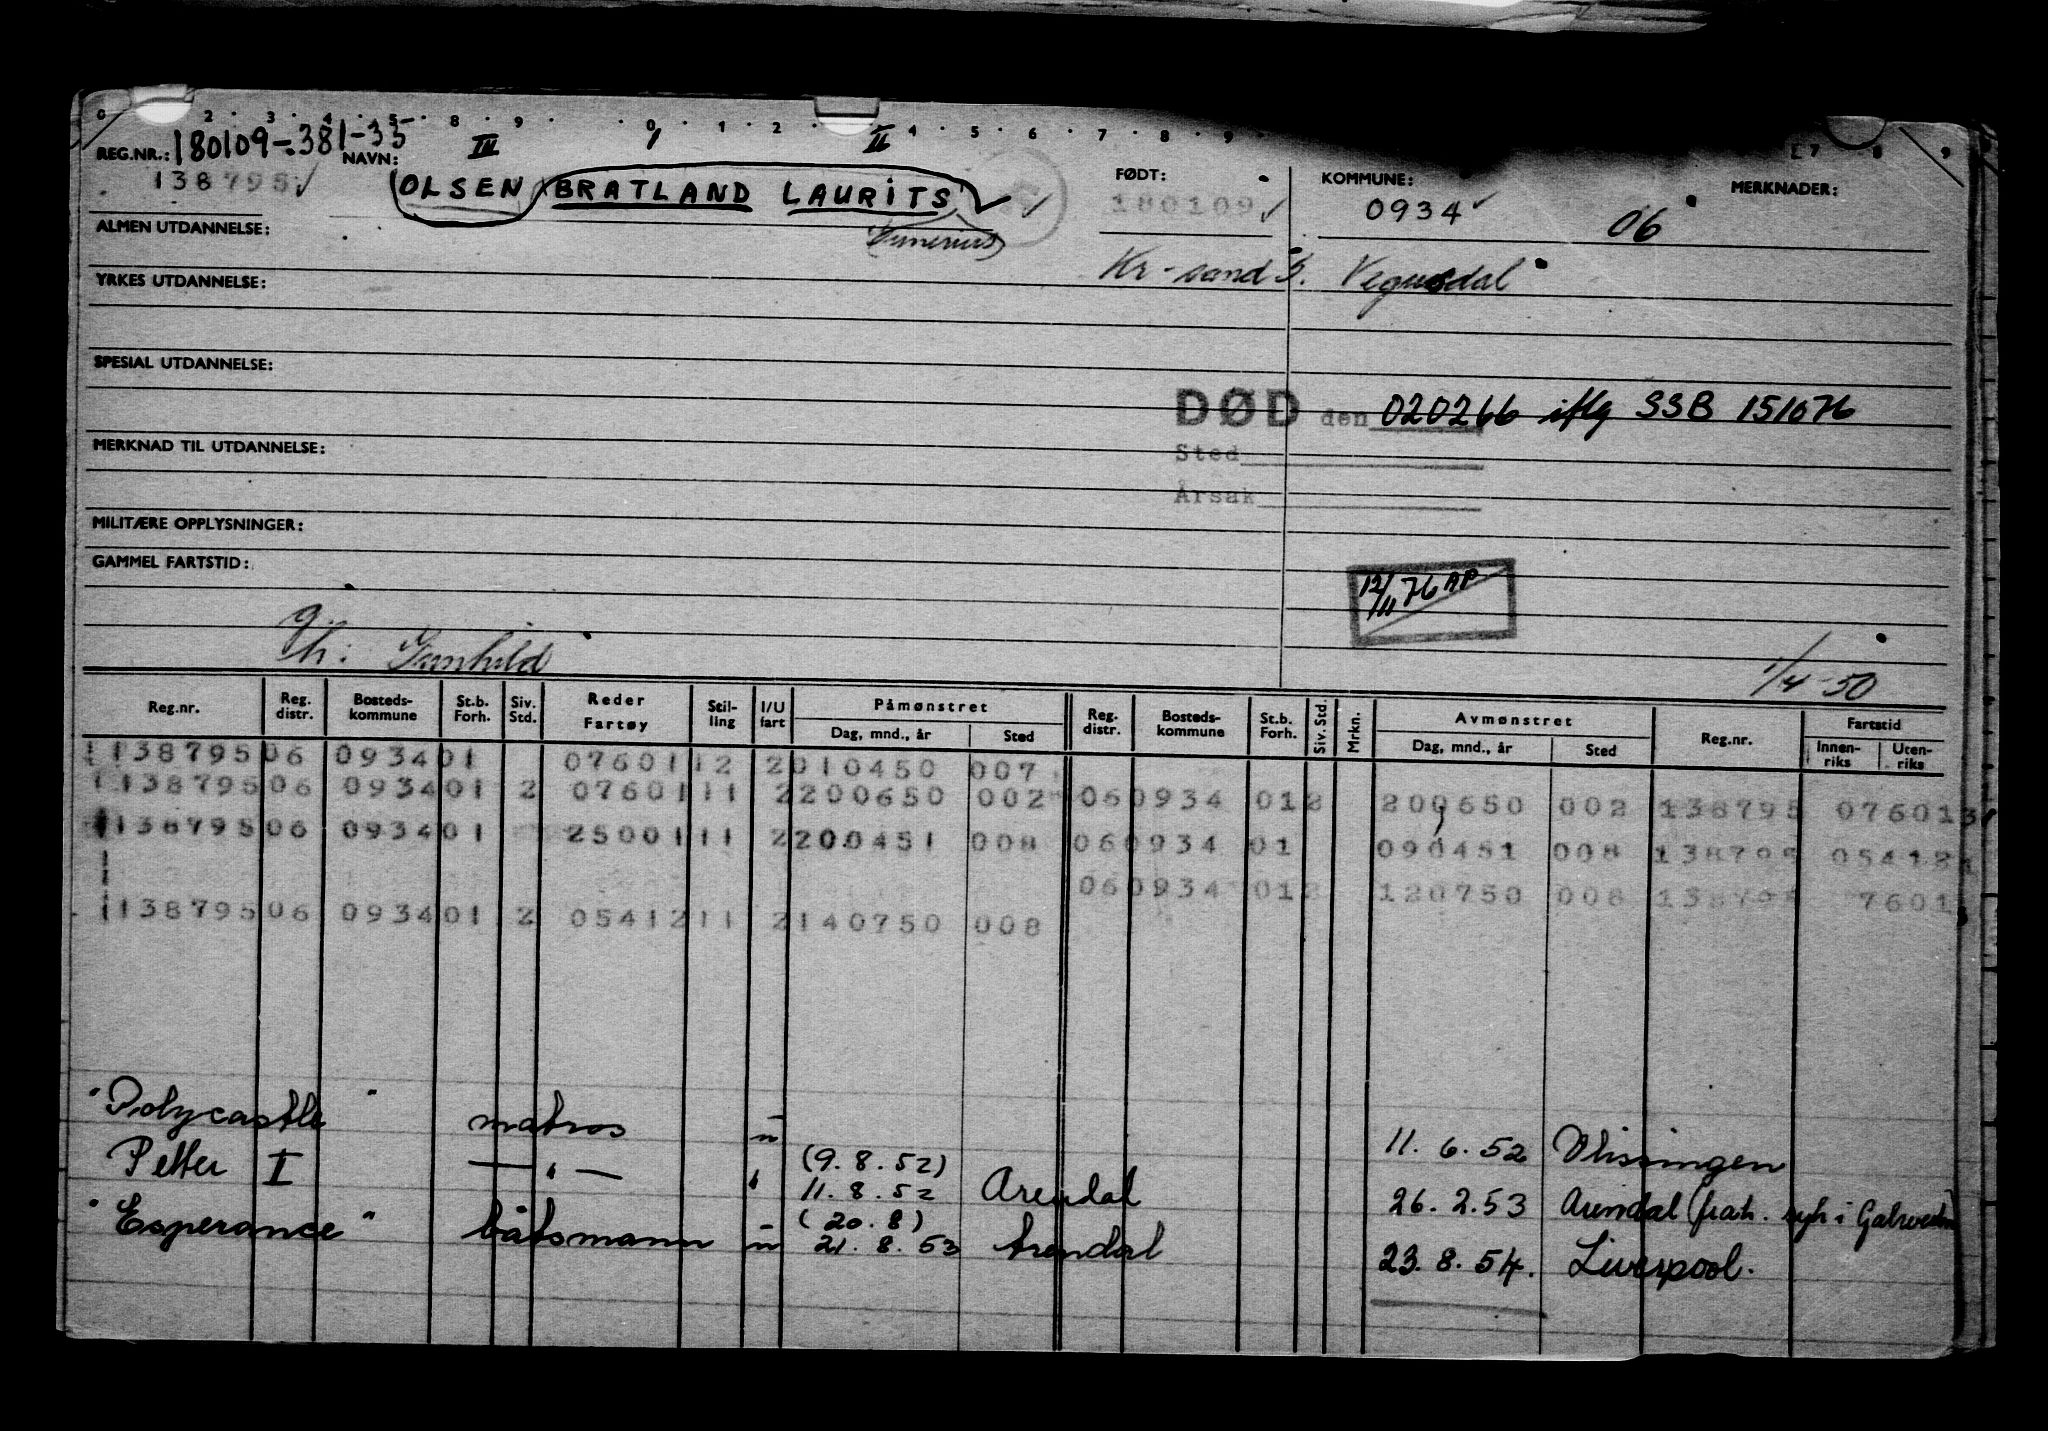 0 2 · 3 · 4 · 5 · 8 · 9 · 0 · 1 · 2 · 4 · 5 · 6 · 7 · 8 · 9 7 8 9
REG.NR.: 180109-381-35 NAVN: III I II FØDT: KOMMUNE: MERKNADER:
138795 OLSEN BRATLAND LAURITS 180109 0934 06
ALMEN UTDANNELSE:
Kr-sand S. Vegusdal
YRKES UTDANNELSE:
SPESIAL UTDANNELSE:
DØD den 020266 iflg SSB 151076
MERKNAD TIL UTDANNELSE: Sted
Årsak
MILITÆRE OPPLYSNINGER:
GAMMEL FARTSTID:
12/11 76 AP
g.
h: Gunhild 1/4-50
Reg.nr. Reg. distr. Bosteds-kommune St.b. Forh. Siv. Std. Reder Fartøy Stil-ling I/U fart Påmønstret Dag, mnd., år Sted Reg. distr. Bosteds-kommune St.b. Forh. Siv. Std. Mrkn. Avmønstret Dag, mnd., år Sted Reg.nr. Fartstid Innen-riks Uten-riks
138795 06 0934 01 07601 12 2 010450 007
138795 06 0934 01 2 07601 11 2 200650 002 06 0934 01 2 200650 002 138795 07601
138795 06 0934 01 25001 11 2 200451 008 06 0934 01 090451 008 138795 05412
06 0934 01 2 120750 008 138795 7601
138795 06 0934 01 2 05412 11 2 140750 008
"Polycastle" matros u 11.6.52 Vlissingen
Petter I — " — " (9.8.52) 11.8.52 Arendal 26.2.53 Arendal (frah. syk i
"Esperance" båtsmann u (20.8) 21.8.53 Arendal 23.8.54. Liverpool.